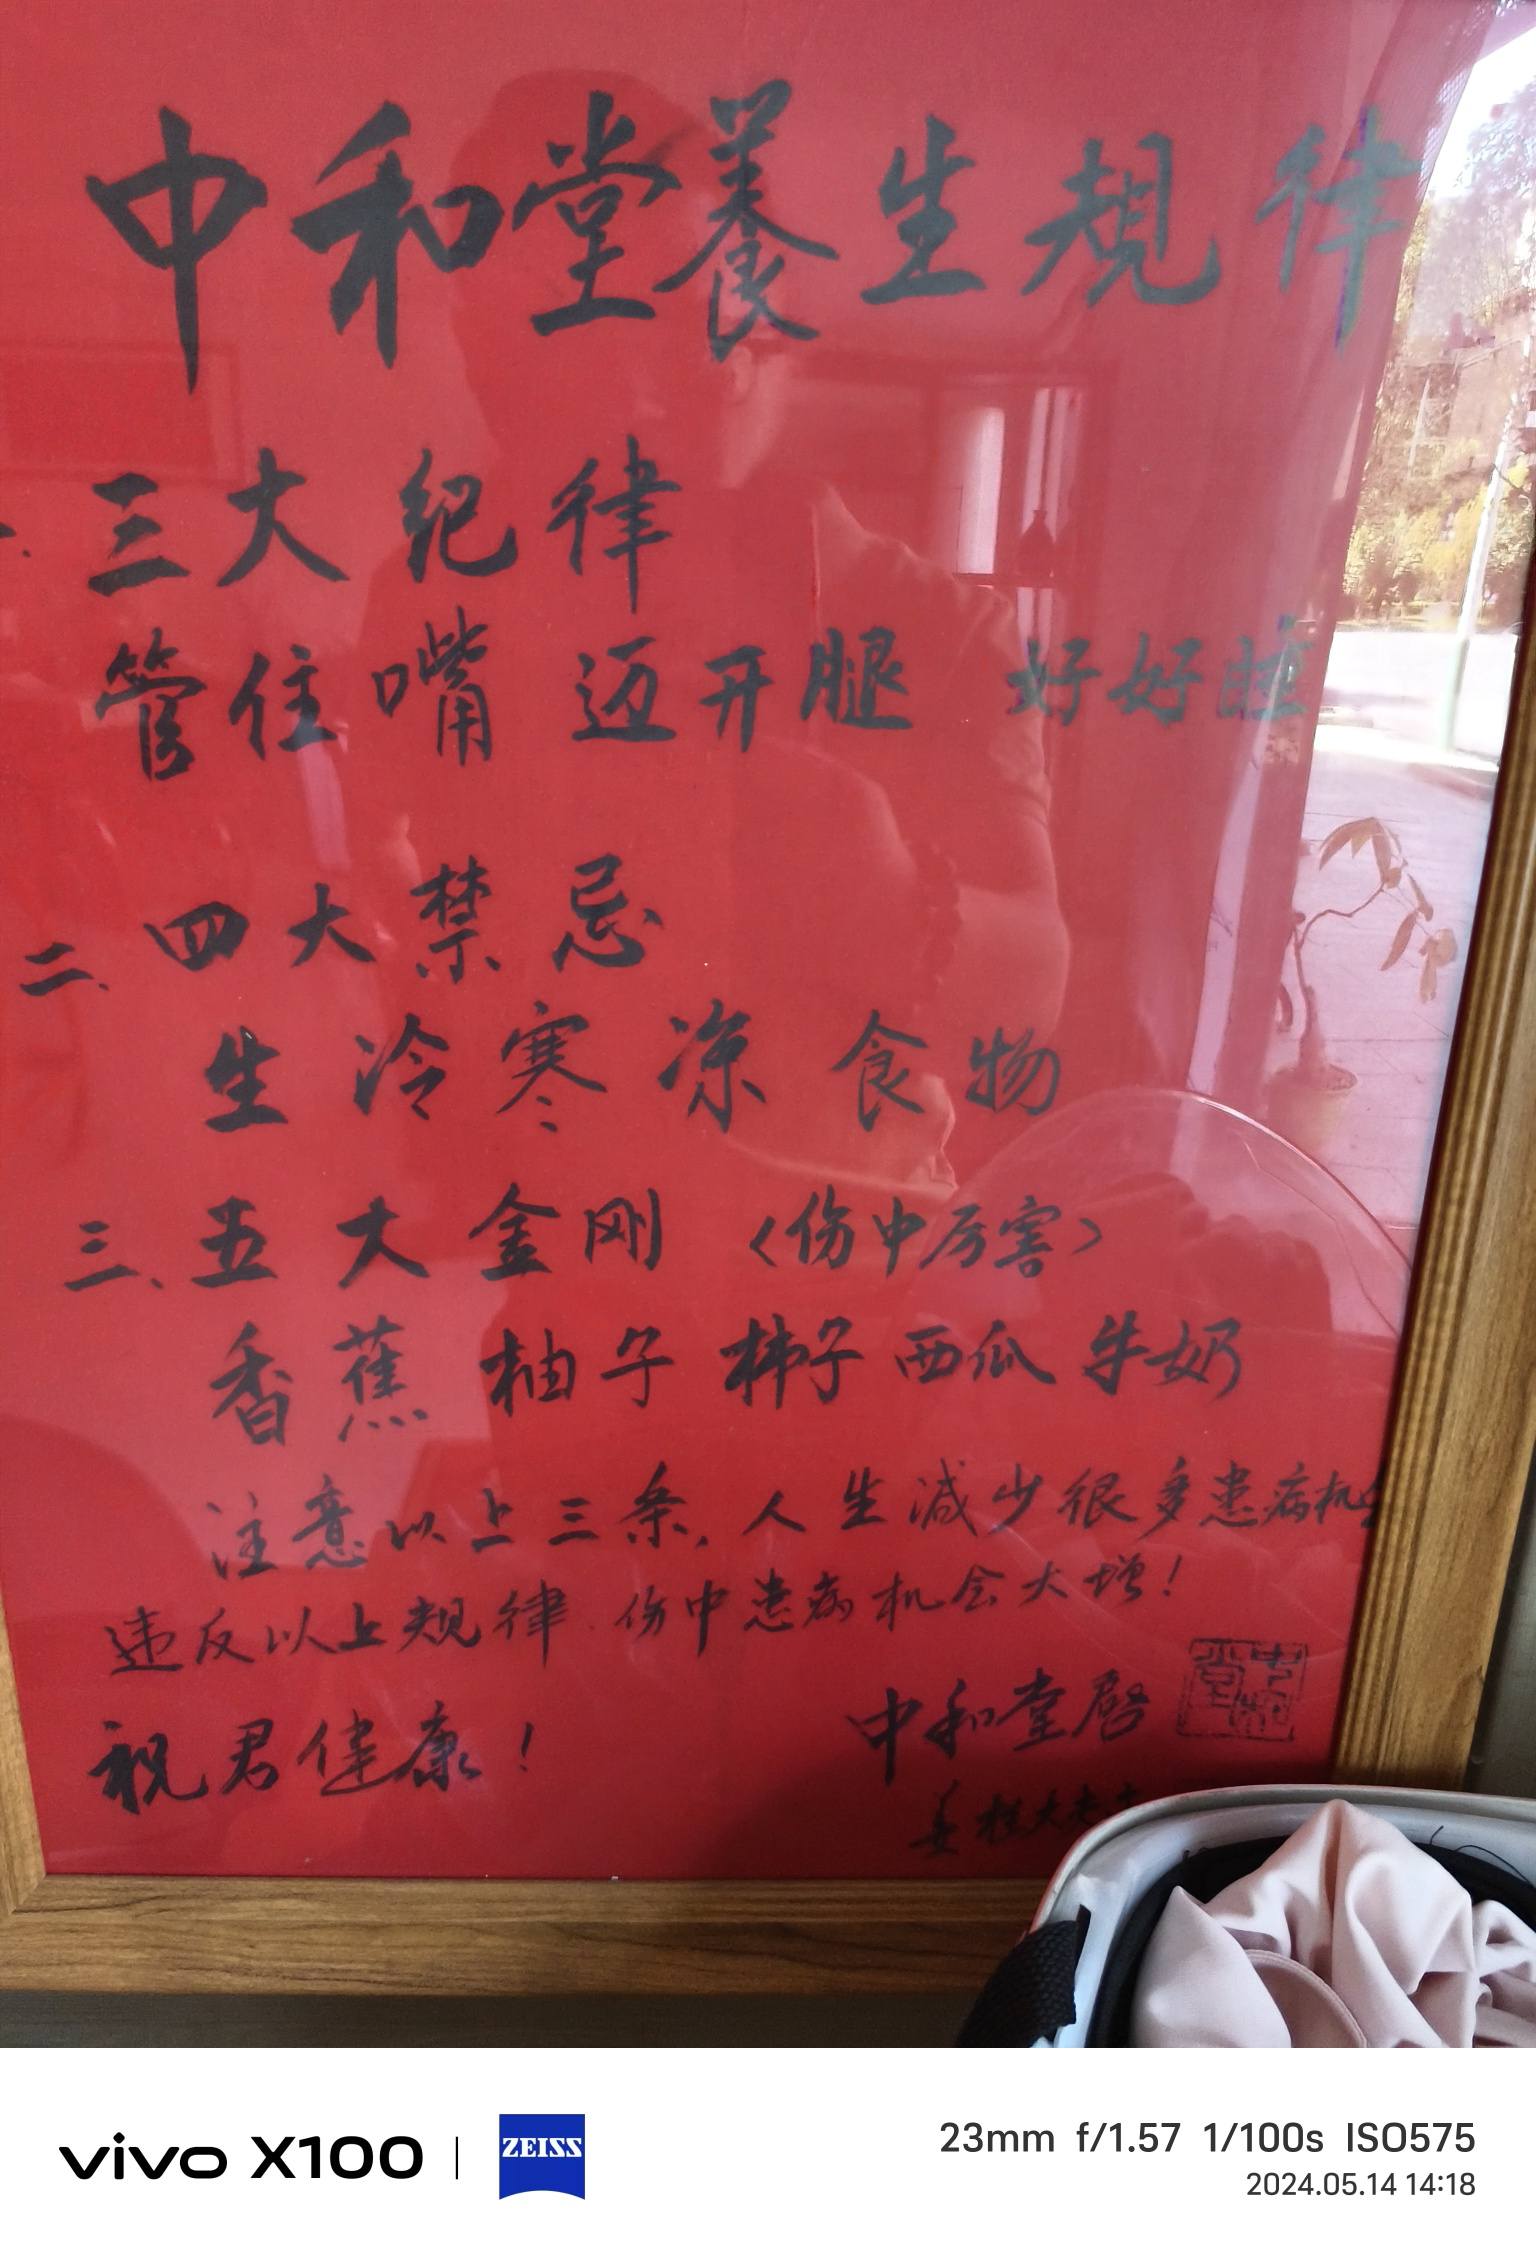 中和堂養生規律
一.三大纪律
管住嘴 迈开腿 好好睡
二、四大禁忌
生冷寒凉食物
三、五大金刚〈伤中厉害〉
香蕉 柚子 柿子 西瓜 牛奶
注意以上三条,人生减少很多患病机会
违反以上规律.伤中患病机会大增!
祝君健康!
中和堂啓
中和堂
vivo X100 | ZEISS
23mm f/1.57 1/100s ISO575
2024.05.14 14:18